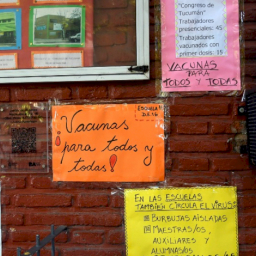 "Congreso de
Tucumán"
Trabajadores
presenciales: 45
Trabajadores
vacunados con
primer dosis: 15
VACUNAS
PARA
TODOS Y TODAS
ESCUELA
DE 16
¡Vacunas
para todos y
todas!
EN LAS ESCUELAS
TAMBIÉN CIRCULA EL VIRUS:
BURBUJAS AISLADAS
MAESTRAS/OS,
AUXILIARES Y
ALUMNAS/OS